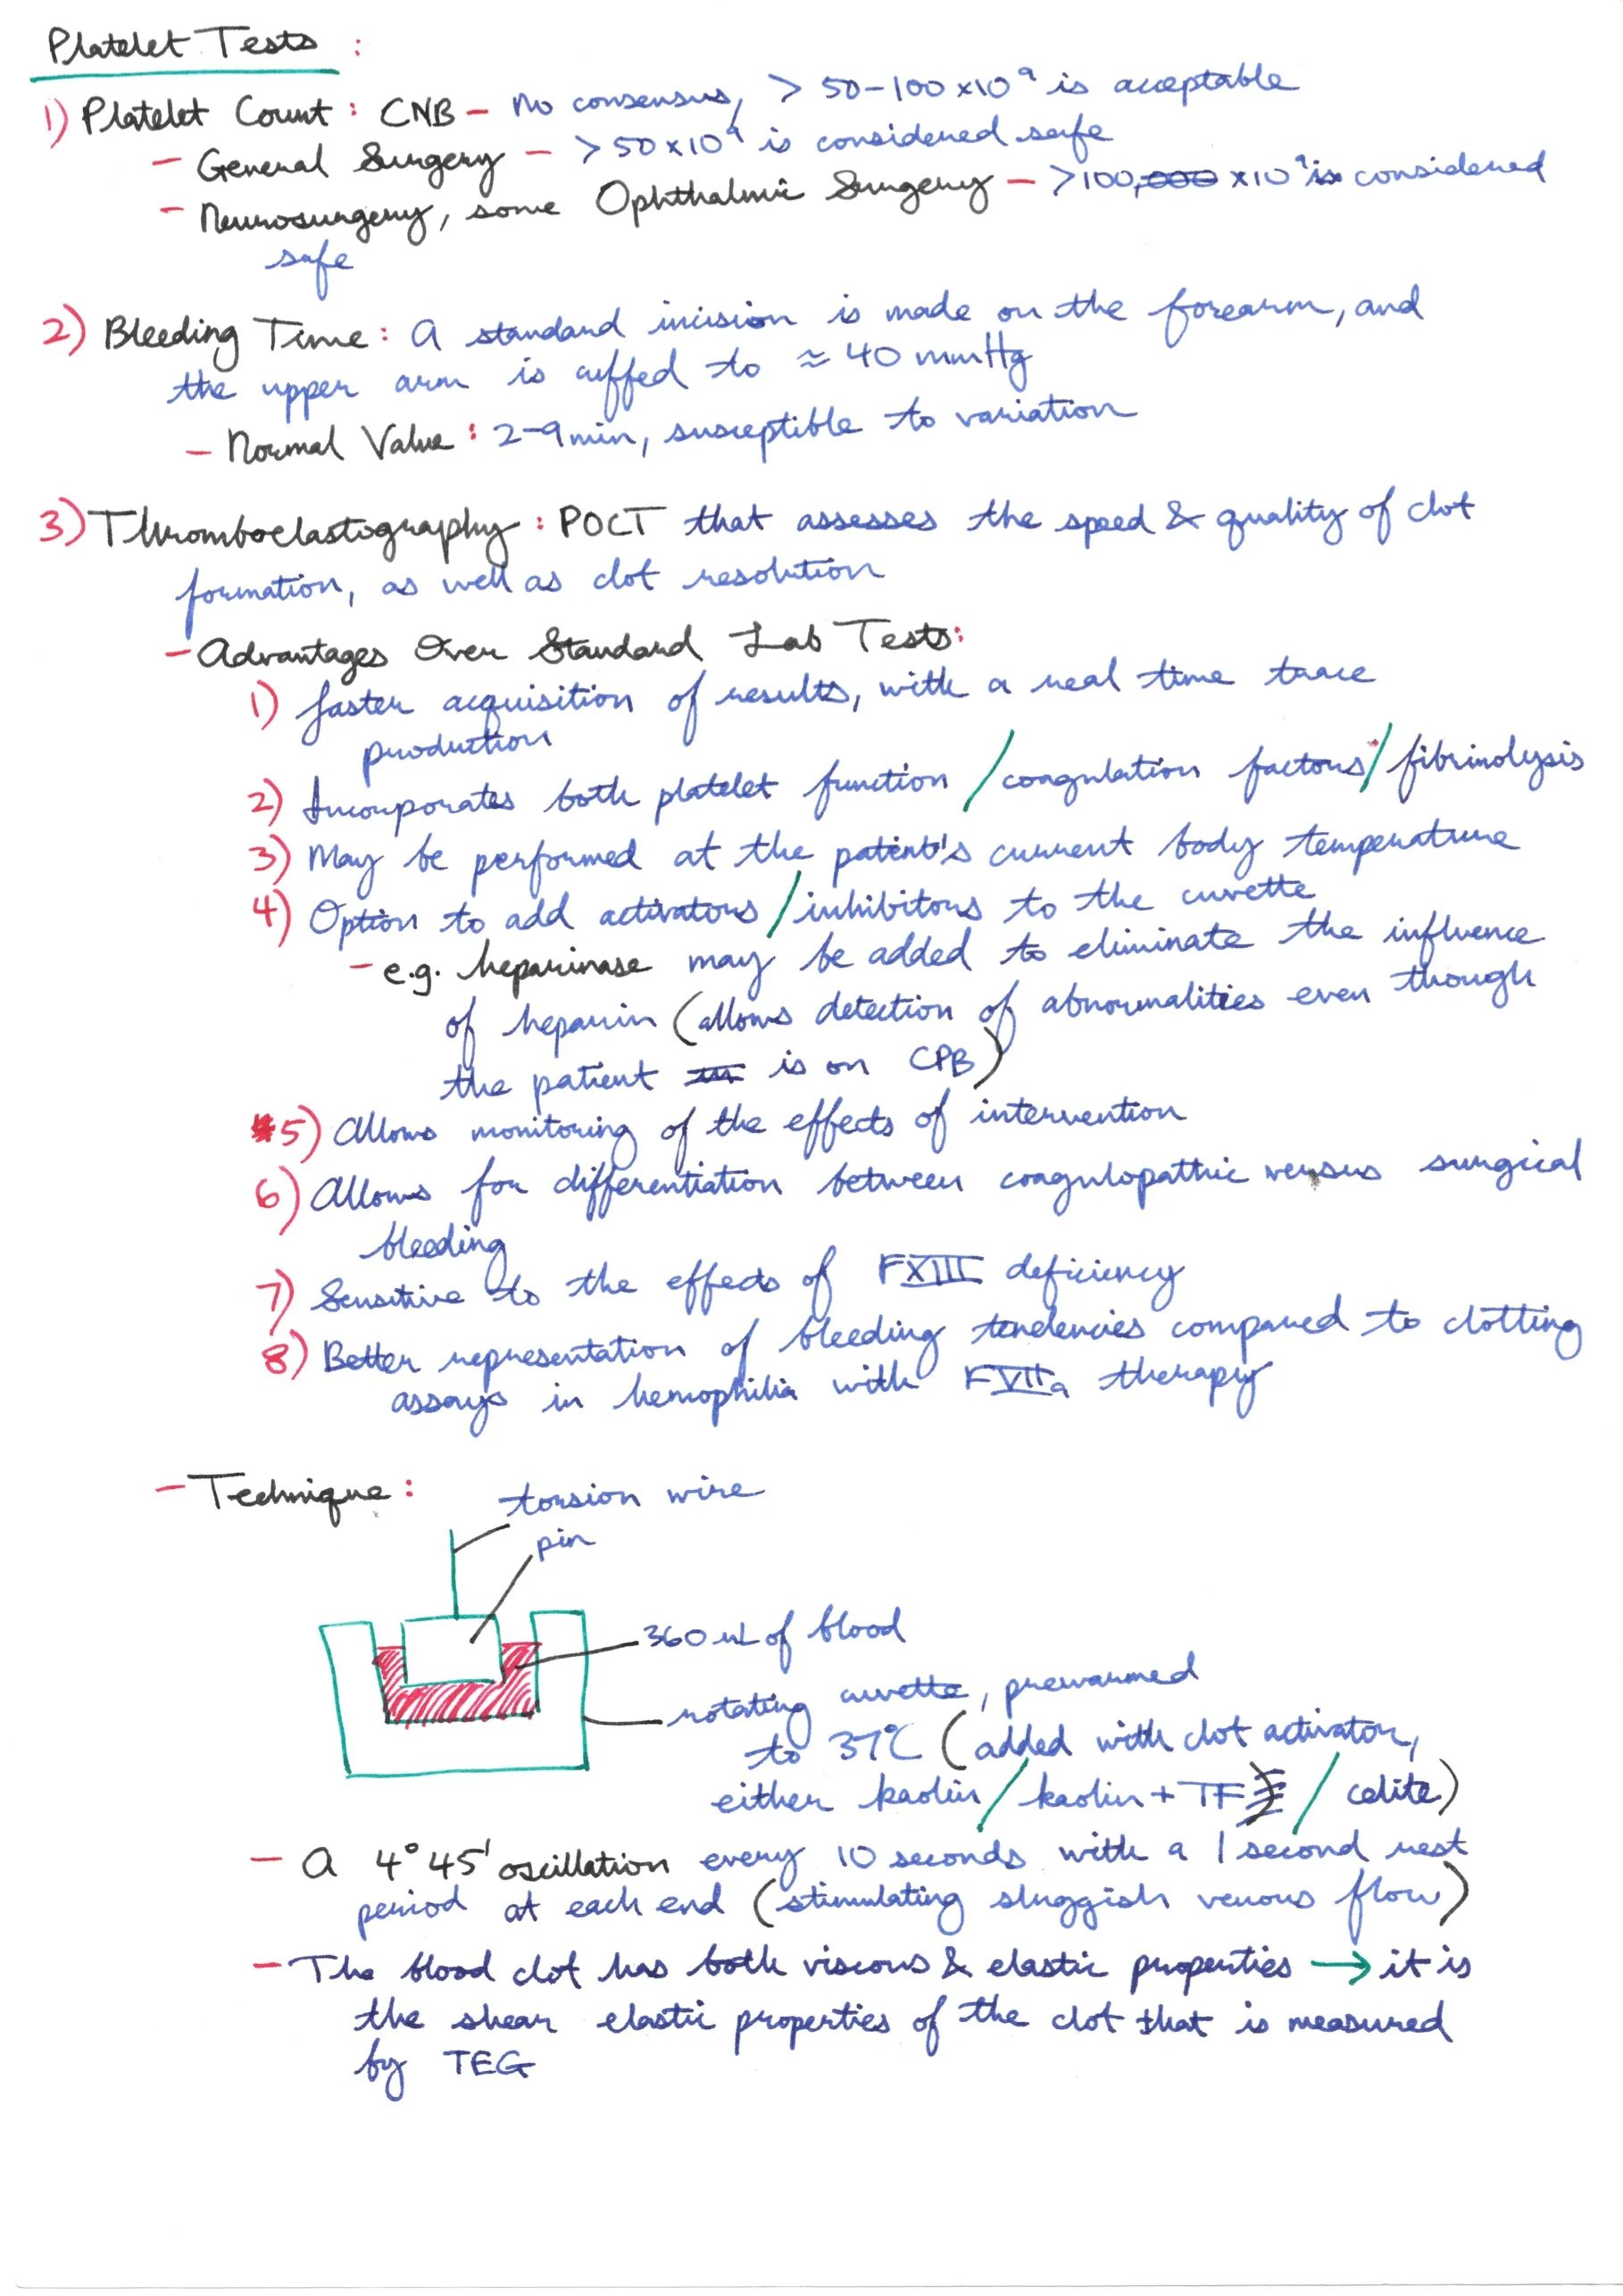 Platelet Tests :
1) Platelet Count : CNB - No consensus, > 50-100 x10⁹ is acceptable
- General Surgery - > 50 x 10⁹ is considered safe
- Neurosurgery, some Ophthalmic Surgery - >100,000 x10⁹ is considered
safe
2) Bleeding Time : A standard incision is made on the forearm, and
the upper arm is cuffed to ≈ 40 mmHg
- Normal Value : 2-9 min, susceptible to variation
3) Thromboelastography : POCT that assesses the speed & quality of clot
formation, as well as clot resolution
- Advantages Over Standard Lab Tests:
1) faster acquisition of results, with a real time trace
production
2) Incorporates both platelet function / coagulation factors / fibrinolysis
3) May be performed at the patient's current body temperature
4) Option to add activators / inhibitors to the cuvette
- e.g. heparinase may be added to eliminate the influence
of heparin (allows detection of abnormalities even though
the patient is on CPB)
5) Allows monitoring of the effects of intervention
6) Allows for differentiation between coagulopathic versus surgical
bleeding
7) Sensitive to the effects of FXIII deficiency
8) Better representation of bleeding tendencies compared to clotting
assays in hemophilia with FVIIa therapy
- Technique :
torsion wire
pin
360 uL of blood
rotating cuvette, prewarmed
to 37°C (added with clot activator,
either kaolin / kaolin + TF / celite)
- A 4° 45' oscillation every 10 seconds with a 1 second rest
period at each end (stimulating sluggish venous flow)
- The blood clot has both viscous & elastic properties → it is
the shear elastic properties of the clot that is measured
by TEG